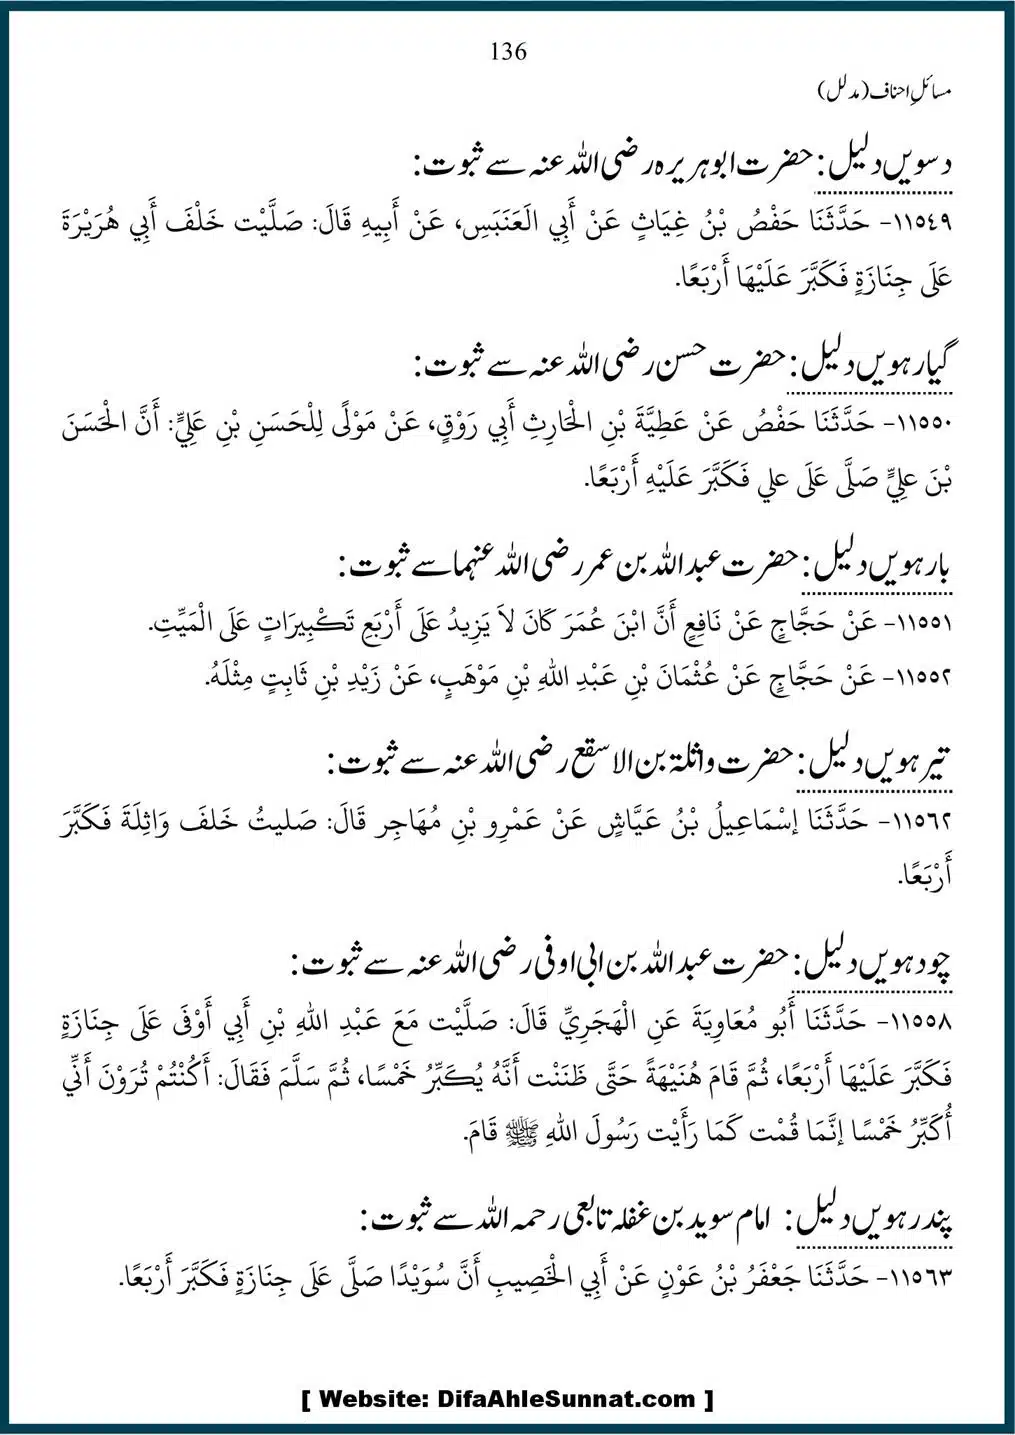 136
مسائلِ احناف (مدلل)
دسویں دلیل: حضرت ابوہریرہ رضی اللہ عنہ سے ثبوت:
١١٥٤٩- حَدَّثَنَا حَفْصُ بْنُ غِيَاثٍ عَنْ أَبِي الْعَنَبَسِ، عَنْ أَبِيهِ قَالَ: صَلَّيْت خَلْفَ أَبِي هُرَيْرَةَ
عَلَى جِنَازَةٍ فَكَبَّرَ عَلَيْهَا أَرْبَعًا.
گیارہویں دلیل: حضرت حسن رضی اللہ عنہ سے ثبوت:
١١٥٥٠- حَدَّثَنَا حَفْصُ عَنْ عَطِيَّةَ بْنِ الْحَارِثِ أَبِي رَوْقٍ، عَنْ مَوْلًى لِلْحَسَنِ بْنِ عَلِيٍّ: أَنَّ الْحَسَنَ
بْنَ علِيٍّ صَلَّى عَلَى علي فَكَبَّرَ عَلَيْهِ أَرْبَعًا.
بارہویں دلیل: حضرت عبد اللہ بن عمر رضی اللہ عنہما سے ثبوت:
١١٥٥١- عَنْ حَجَّاجٍ عَنْ نَافِعٍ أَنَّ ابْنَ عُمَرَ كَانَ لاَ يَزِيدُ عَلَى أَرْبَعِ تَكْبِيرَاتٍ عَلَى الْمَيِّتِ.
١١٥٥٢- عَنْ حَجَّاجٍ عَنْ عُثْمَانَ بْنِ عَبْدِ اللهِ بْنِ مَوْهَبٍ، عَنْ زَيْدِ بْنِ ثَابِتٍ مِثْلَهُ.
تیرہویں دلیل: حضرت واثلۃ بن الاسقع رضی اللہ عنہ سے ثبوت:
١١٥٦٢- حَدَّثَنَا إسْمَاعِيلُ بْنُ عَيَّاشٍ عَنْ عَمْرِو بْنِ مُهَاجِر قَالَ: صَليتُ خَلفَ وَاثِلَةَ فَكَبَّرَ
أَرْبَعًا.
چودہویں دلیل: حضرت عبد اللہ بن ابی اوفی رضی اللہ عنہ سے ثبوت:
١١٥٥٨- حَدَّثَنَا أَبُو مُعَاوِيَةَ عَنِ الْهَجَرِيِّ قَالَ: صَلَّيْت مَعَ عَبْدِ اللهِ بْنِ أَبِي أَوْفَى عَلَى جِنَازَةٍ
فَكَبَّرَ عَلَيْهَا أَرْبَعًا، ثُمَّ قَامَ هُنَيْهَةً حَتَّى ظَنَنْت أَنَّهُ يُكَبِّرُ خَمْسًا، ثُمَّ سَلَّمَ فَقَالَ: أَكُنْتُمْ تُرَوْنَ أَنِّي
أُكَبِّرُ خَمْسًا إنَّمَا قُمْت كَمَا رَأَيْت رَسُولَ اللهِ ﷺ قَامَ.
پندرہویں دلیل: امام سوید بن غفلہ تابعی رحمہ اللہ سے ثبوت:
١١٥٦٣- حَدَّثَنَا جَعْفَرُ بْنُ عَوْنٍ عَنْ أَبِي الْخَصِيبِ أَنَّ سُوَيْدًا صَلَّى عَلَى جِنَازَةٍ فَكَبَّرَ أَرْبَعًا.
[ Website: DifaAhleSunnat.com ]